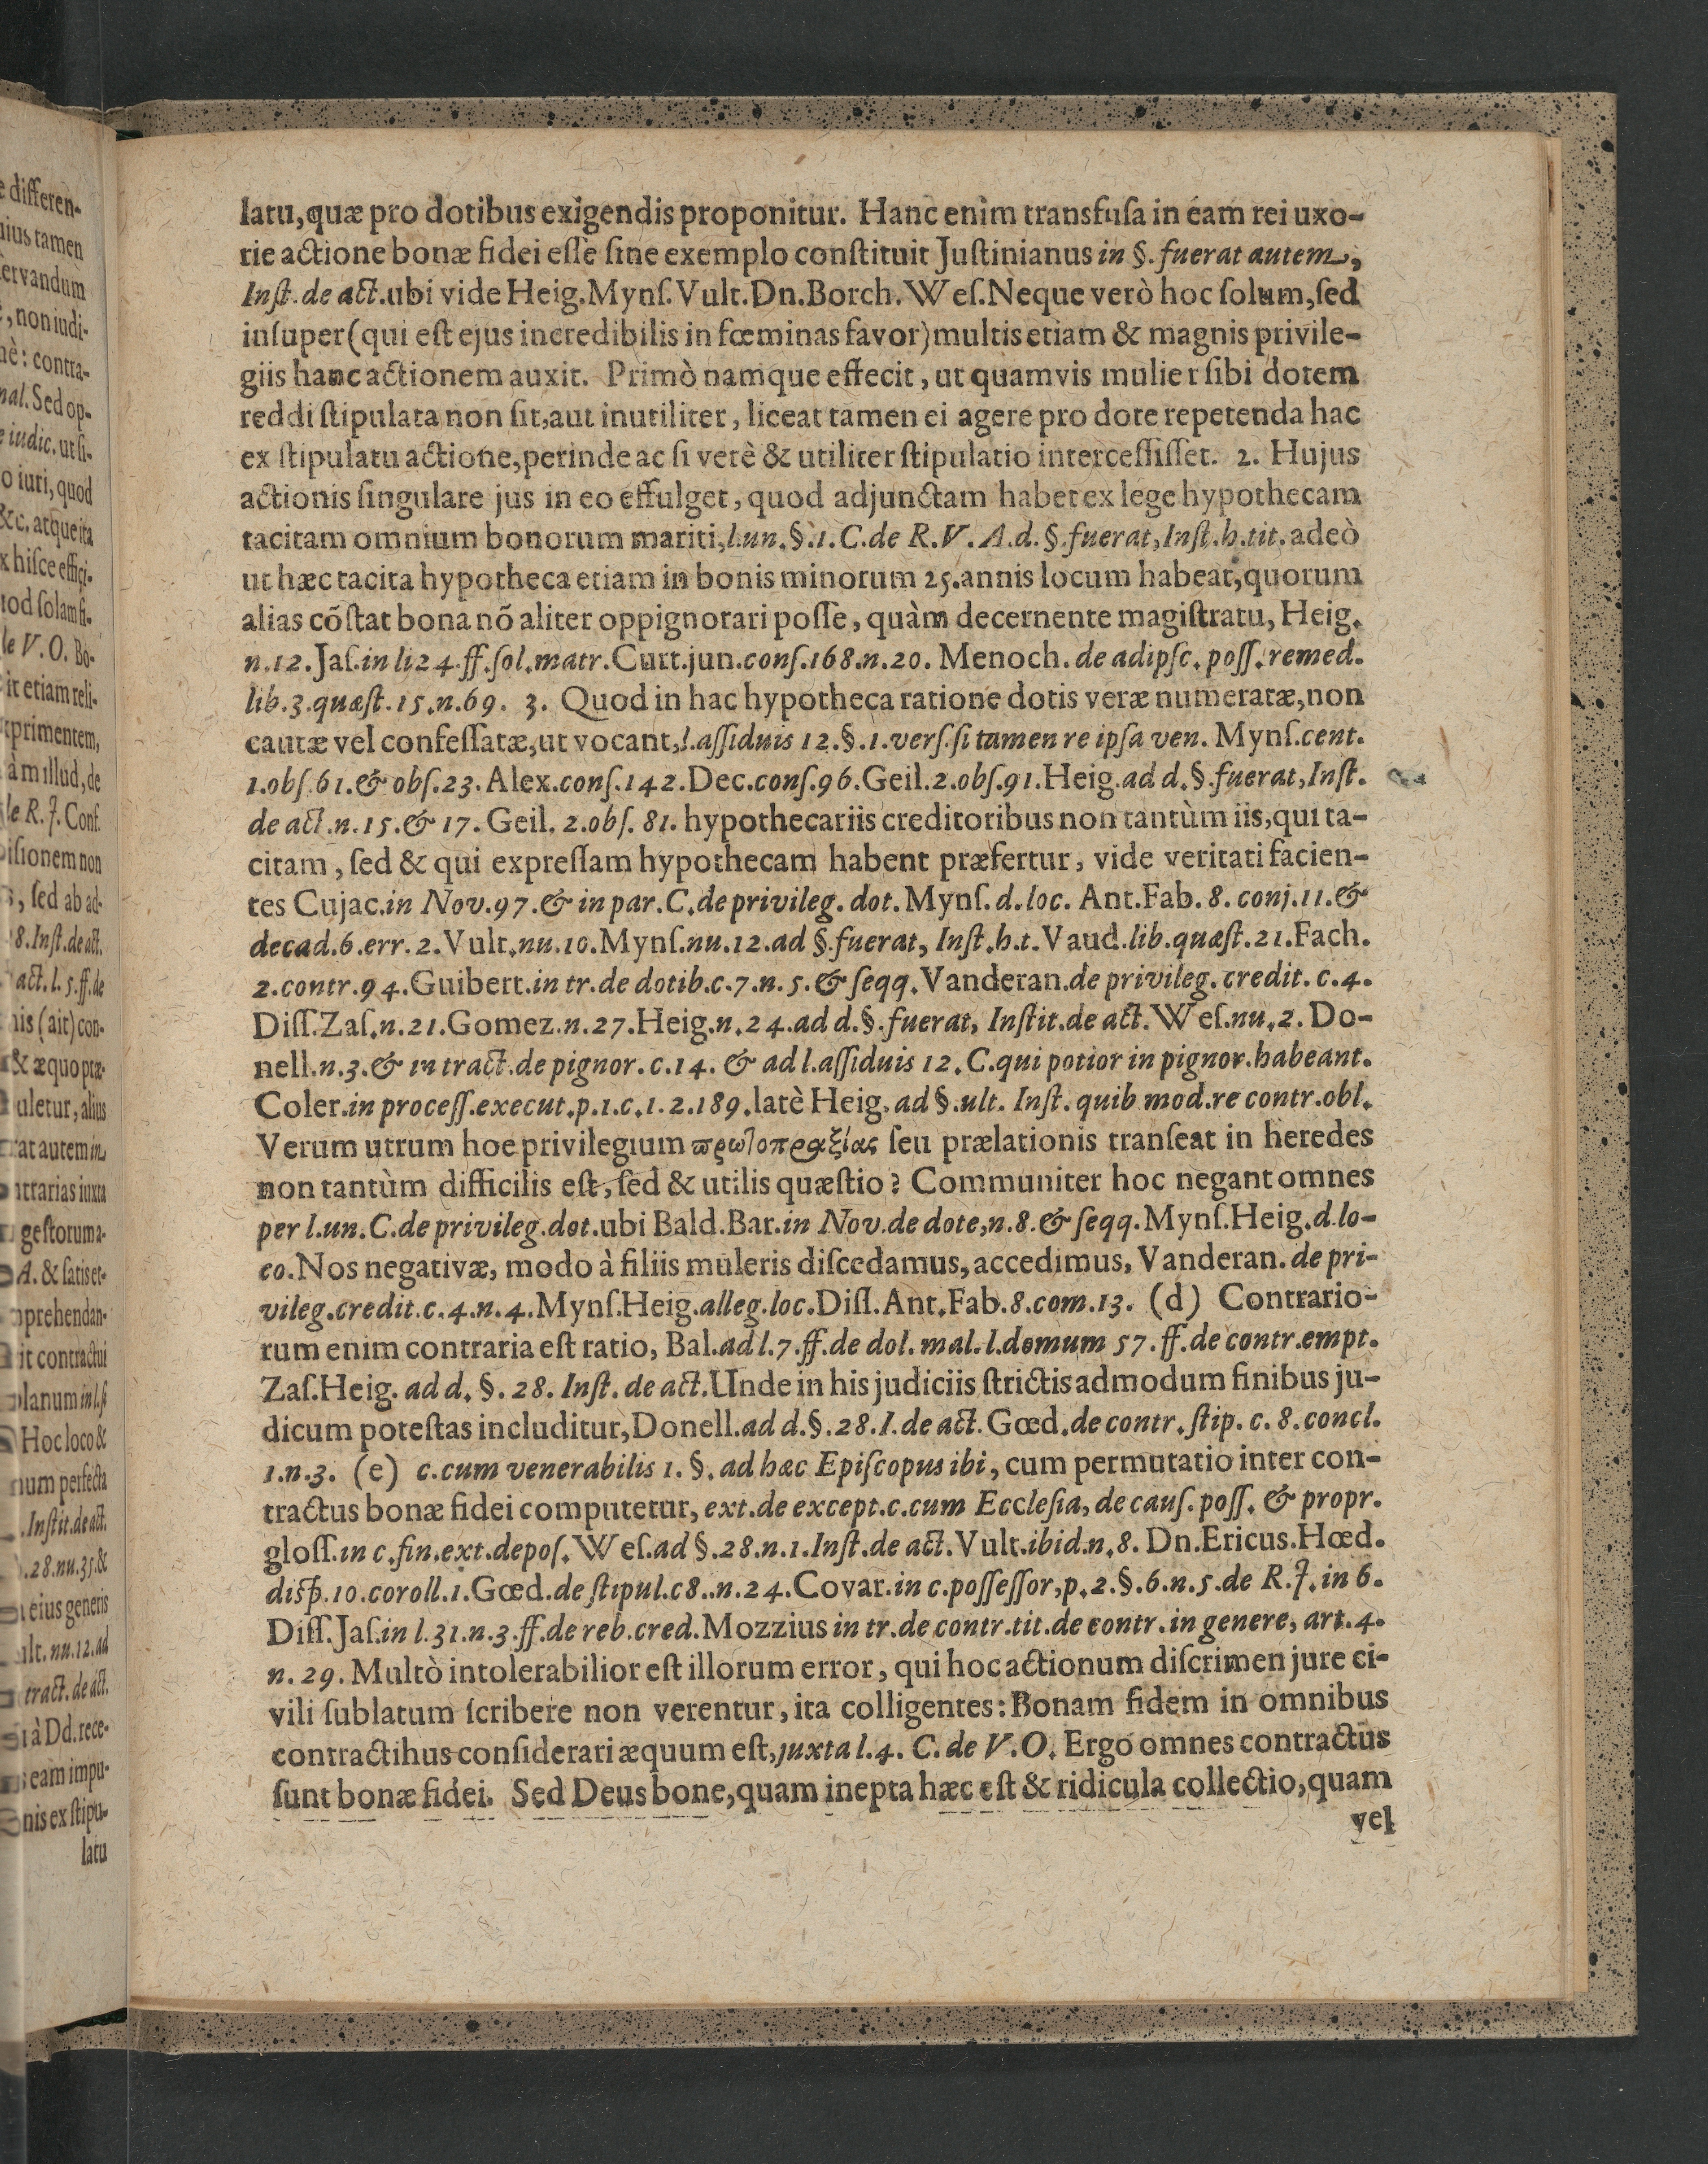 latu, quæ pro dotibus exigendis proponitur. Hanc enim transfuſa in eam rei uxo-
rie actione bonæ fidei eſſe ſine exemplo conſtituit Juſtinianus in §. fuerat autem,
Inſt. de act. ubi vide Heig. Mynſ. Vult. Dn. Borch. Weſ. Neque verò hoc ſolum, ſed
inſuper (qui eſt ejus incredibilis in fœminas favor) multis etiam & magnis privile-
giis hanc actionem auxit. Primò namque effecit, ut quamvis mulier ſibi dotem
reddi ſtipulata non ſit, aut inutiliter, liceat tamen ei agere pro dote repetenda hac
ex ſtipulatu actione, perinde ac ſi verè & utiliter ſtipulatio interceſſiſſet. 2. Hujus
actionis ſingulare jus in eo effulget, quod adjunctam habet ex lege hypothecam
tacitam omnium bonorum mariti, l. un. §. 1. C. de R. V. A. d. §. fuerat, Inſt. h. tit. adeò
ut hæc tacita hypotheca etiam in bonis minorum 25. annis locum habeat, quorum
alias cõſtat bona nõ aliter oppignorari poſſe, quàm decernente magiſtratu, Heig.
n. 12. Jaſ. in li 24. ff. ſol. matr. Curt. jun. conſ. 168. n. 20. Menoch. de adipſc. poſſ. remed.
lib. 3. quæſt. 15. n. 69. 3. Quod in hac hypotheca ratione dotis veræ numeratæ, non
cautæ vel confeſſatæ, ut vocant, l. aſſiduis 12. §. 1. verſ. ſi tamen re ipſa ven. Mynſ. cent.
1. obſ. 61. & obſ. 23. Alex. conſ. 142. Dec. conſ. 96. Geil. 2. obſ. 91. Heig. ad d. §. fuerat, Inſt.
de act. n. 15. & 17. Geil. 2. obſ. 81. hypothecariis creditoribus non tantùm iis, qui ta-
citam, ſed & qui expreſſam hypothecam habent præfertur, vide veritati facien-
tes Cujac. in Nov. 97. & in par. C. de privileg. dot. Mynſ. d. loc. Ant. Fab. 8. conj. 11. &
decad. 6. err. 2. Vult. nu. 10. Mynſ. nu. 12. ad §. fuerat, Inſt. h. t. Vaud. lib. quæſt. 21. Fach.
2. contr. 94. Guibert. in tr. de dotib. c. 7. n. 5. & ſeqq. Vanderan. de privileg. credit. c. 4.
Diſſ. Zaſ. n. 21. Gomez. n. 27. Heig. n. 24. ad d. §. fuerat, Inſtit. de act. Weſ. nu. 2. Do-
nell. n. 3. & in tract. de pignor. c. 14. & ad l. aſſiduis 12. C. qui potior in pignor. habeant.
Coler. in proceſſ. execut. p. 1. c. 1. 2. 189. latè Heig. ad §. ult. Inſt. quib mod. re contr. obl.
Verum utrum hoe privilegium πρωτοπραξίας ſeu prælationis tranſeat in heredes
non tantùm difficilis eſt, ſed & utilis quæſtio? Communiter hoc negant omnes
per l. un. C. de privileg. dot. ubi Bald. Bar. in Nov. de dote, n. 8. & ſeqq. Mynſ. Heig. d. lo-
co. Nos negativæ, modo à filiis muleris diſcedamus, accedimus, Vanderan. de pri-
vileg. credit. c. 4. n. 4. Mynſ. Heig. alleg. loc. Diſſ. Ant. Fab. 8. com. 13. (d) Contrario-
rum enim contraria eſt ratio, Bal. ad l. 7. ff. de dol. mal. l. domum 57. ff. de contr. empt.
Zaſ. Heig. ad d. §. 28. Inſt. de act. Unde in his judiciis ſtrictis admodum finibus ju-
dicum poteſtas includitur, Donell. ad d. §. 28. I. de act. Gœd. de contr. ſtip. c. 8. concl.
1. n. 3. (e) c. cum venerabilis 1. §. ad hæc Epiſcopus ibi, cum permutatio inter con-
tractus bonæ fidei computetur, ext. de except. c. cum Eccleſia, de cauſ. poſſ. & propr.
gloſſ. in c. fin. ext. depoſ. Weſ. ad §. 28. n. 1. Inſt. de act. Vult. ibid. n. 8. Dn. Ericus. Hœd.
diſp. 10. coroll. 1. Gœd. de ſtipul. c 8.. n. 24. Covar. in c. poſſeſſor, p. 2. §. 6. n. 5. de R. J. in 6.
Diſſ. Jaſ. in l. 31. n. 3. ff. de reb. cred. Mozzius in tr. de contr. tit. de contr. in genere, art. 4.
n. 29. Multò intolerabilior eſt illorum error, qui hoc actionum diſcrimen jure ci-
vili ſublatum ſcribere non verentur, ita colligentes: Bonam fidem in omnibus
contractihus conſiderari æquum eſt, juxta l. 4. C. de V. O. Ergo omnes contractus
ſunt bonæ fidei. Sed Deus bone, quam inepta hæc eſt & ridicula collectio, quam
vel